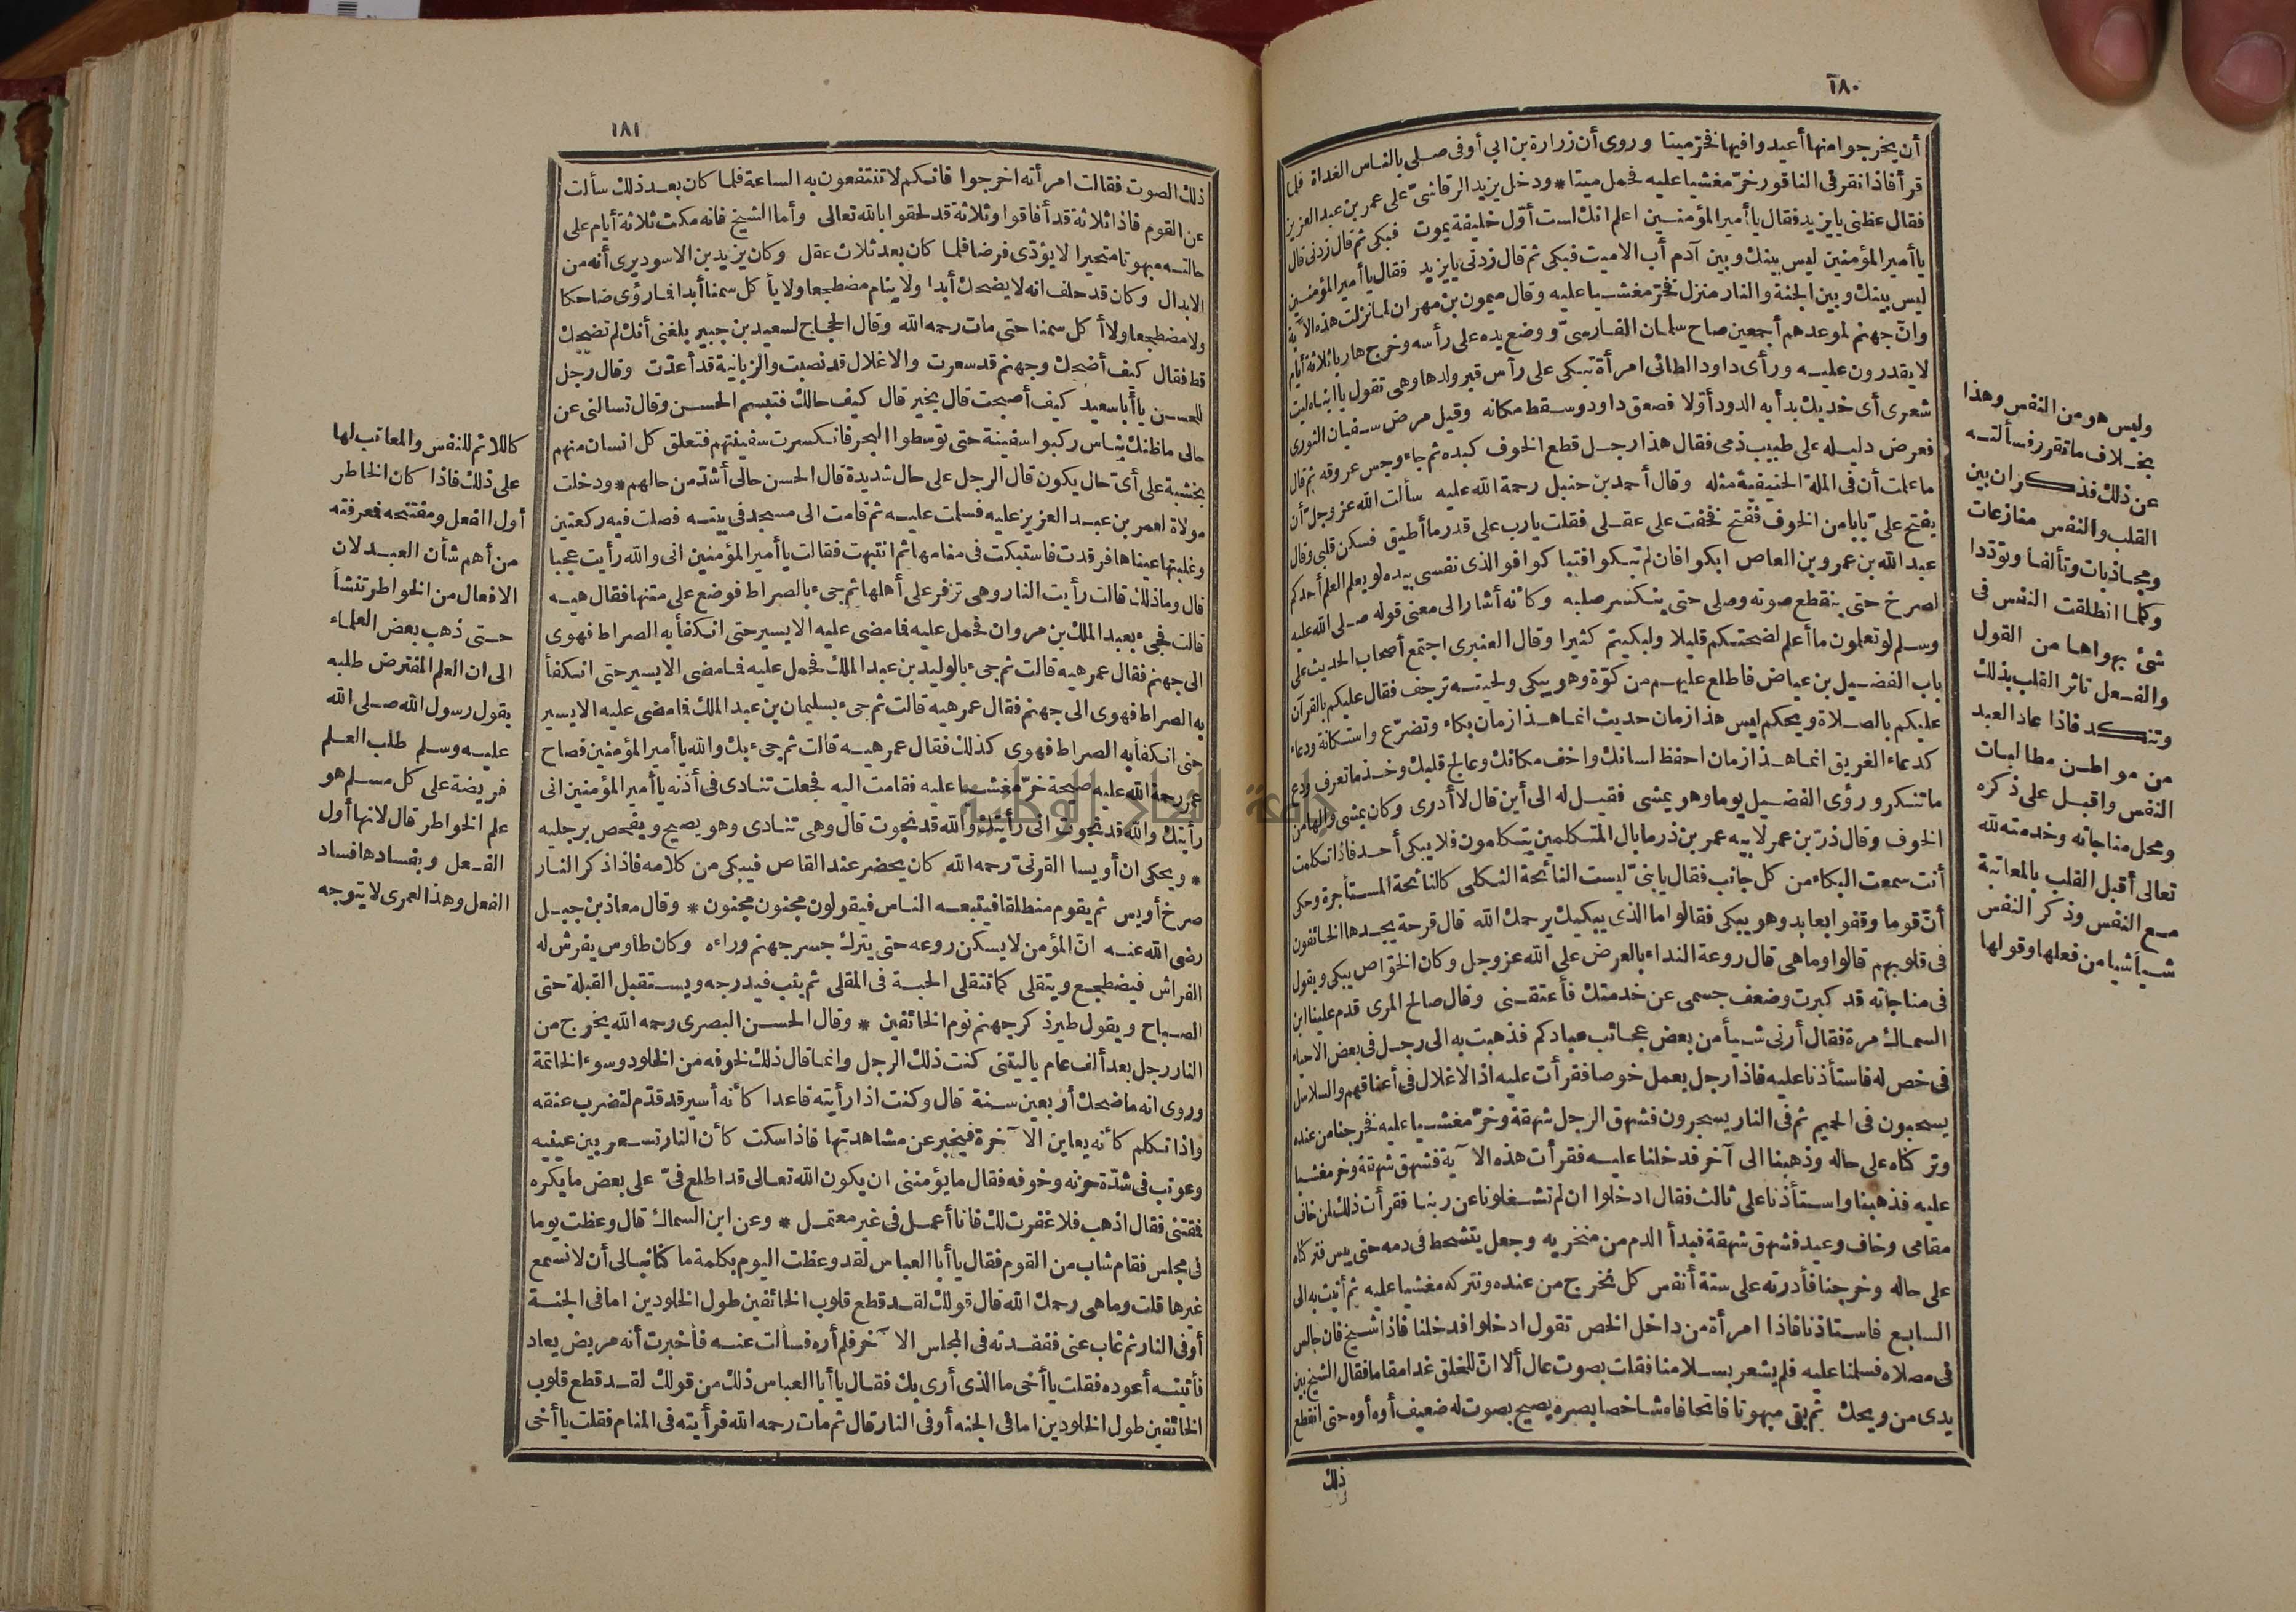 ١٨٠
أن يخرجوا منها أعيدوا فيها فخر ميتا وروى أن زرارة بن ابي أوفى صلى بالناس الغداة فلما
قرأ فاذا نقر في الناقور خرّ مغشيا عليه فحمل ميتا * ودخل يزيد الرقاشىّ على عمر بن عبد العزيز
فقال عظنى يا يزيد فقال يا أمير المؤمنين اعلم انك لست أوّل خليفة يموت فبكى ثم قال زدنى قال
يا أمير المؤمنين ليس بينك وبين آدم أب الا ميت فبكى ثم قال زدنى يا يزيد فقال يا أمير المؤمنين
ليس بينك وبين الجنة والنار منزل فخرّ مغشيا عليه وقال ميمون بن مهران لما نزلت هذه الآية
وانّ جهنم لموعدهم أجمعين صاح سلمان الفارسىّ ووضع يده على رأسه وخرج هاربا ثلاثة أيام
لا يقدرون عليه ورأى داود الطائى امرأة تبكى على رأس قبر ولدها وهى تقول يا ابناه ليت
شعرى أى خديك بدأ به الدود أوّلا فصعق داود وسقط مكانه وقيل مرض سفيان الثورى
فعرض دليله على طبيب ذمى فقال هذا رجل قطع الخوف كبده ثم جاء وجس عروقه ثم قال
ما علمت أن فى الملة الحنيفية مثله وقال أحمد بن حنبل رحمة الله عليه سألت الله عز وجل أن
يفتح علىّ بابا من الخوف ففتح فخفت على عقلى فقلت يا رب على قدر ما أطيق فسكن قلبى وقال
عبد الله بن عمرو بن العاص ابكوا فان لم تبكوا فتباكوا فوالذى نفسى بيده لو يعلم العلم أحدكم
لصرخ حتى ينقطع صوته وصلى حتى ينكسر صلبه وكأنه أشار الى معنى قوله صلى الله عليه
وسلم لو تعلمون ما أعلم لضحكتم قليلا ولبكيتم كثيرا وقال العنبرى اجتمع أصحاب الحديث على
باب الفضيل بن عياض فاطلع عليهم من كوّة وهو يبكى ولحيته ترجف فقال عليكم بالقرآن
عليكم بالصلاة ويحكم ليس هذا زمان حديث انما هذا زمان بكاء وتضرّع واستكانة ودعاء
كدعاء الغريق انما هذا زمان احفظ لسانك واخف مكانك وعالج قلبك وخذ ما تعرف ودع
ما تنكر ورؤى الفضيل يوما وهو يمشى فقيل له الى أين قال لا أدرى وكان يمشى والها من
الخوف وقال ذرّ بن عمر لابيه عمر بن ذر ما بال المتكلمين يتكلمون فلا يبكى أحد فاذا تكلمت
أنت سمعت البكاء من كل جانب فقال يا بنىّ ليست النائحة الثكلى كالنائحة المستأجرة وحكى
أنّ قوما وقفوا بعابد وهو يبكى فقالوا ما الذى يبكيك يرحمك الله قال قرحة يجدها الخائفون
فى قلوبهم قالوا وما هى قال روعة النداء بالعرض على الله عز وجل وكان الخوّاص يبكى ويقول
فى مناجاته قد كبرت وضعف جسمى عن خدمتك فأعتقنى وقال صالح المرى قدم علينا ابن
السماك مرة فقال أرنى شيأ من بعض عجائب عبادكم فذهبت به الى رجل فى بعض الاحياء
فى خص له فاستأذنا عليه فاذا رجل يعمل خوصا فقرأت عليه اذ الاغلال فى أعناقهم والسلاسل
يسحبون فى الحميم ثم فى النار يسجرون فشهق الرجل شهقة وخرّ مغشيا عليه فخرجنا من عنده
وتركناه على حاله وذهبنا الى آخر فدخلنا عليه فقرأت هذه الآية فشهق شهقة وخر مغشيا
عليه فذهبنا واستأذنا على ثالث فقال ادخلوا ان لم تشغلونا عن ربنا فقرأت ذلك لمن خاف
مقامى وخاف وعيد فشهق شهقة فبدأ الدم من منخريه وجعل يتشحط فى دمه حتى يبس فتركناه
على حاله وخرجنا فأدرته على ستة أنفس كل نخرج من عنده ونتركه مغشيا عليه ثم أتيت به الى
السابع فاستأذنا فاذا امرأة من داخل الخص تقول ادخلوا فدخلنا فاذا شيخ فان جالس
فى مصلاه فسلمنا عليه فلم يشعر بسلامنا فقلت بصوت عال ألا انّ للخلق غدا مقاما فقال الشيخ بين
يدى من ويحك ثم بقى مبهوتا فاتحا فاه شاخصا بصره يصيح بصوت له ضعيف أوه أوه حتى انقطع
ذلك
وليس هو من النفس وهذا
بخلاف ما تقرر فسألته
عن ذلك فذكر ان بين
القلب والنفس منازعات
ومجاذبات وتألفا وتودّدا
وكلما انطلقت النفس فى
شئ بهواها من القول
والفعل تاثر القلب بذلك
وتنكد فاذا عاد العبد
من مواطن مطالبات
النفس واقبل على ذكره
ومحل مناجاته وخدمته لله
تعالى أقبل القلب بالمعاتبة
مع النفس وذكر النفس
شيأ شيا من فعلها وقولها
١٨١
ذلك الصوت فقالت امرأته اخرجوا فانكم لا تنتفعون به الساعة فلما كان بعد ذلك سألت
عن القوم فاذا ثلاثة قد أفاقوا وثلاثة قد لحقوا بالله تعالى وأما الشيخ فانه مكث ثلاثة أيام على
حالته مبهوتا متحيرا لا يؤدّى فرضا فلما كان بعد ثلاث عقل وكان يزيد بن الاسود يرى أنه من
الابدال وكان قد حلف انه لا يضحك أبدا ولا ينام مضطجعا ولا يأكل سمنا أبدا فما رؤى ضاحكا
ولا مضطجعا ولا أكل سمنا حتى مات رحمه الله وقال الحجاج لسعيد بن جبير بلغنى أنك لم تضحك
قط فقال كيف أضحك وجهنم قد سعرت والاغلال قد نصبت والزبانية قد أعدّت وقال رجل
للحسن يا أبا سعيد كيف أصبحت قال بخير قال كيف حالك فتبسم الحسن وقال تسالنى عن
حالى ما ظنك بناس ركبوا سفينة حتى توسطوا البحر فانكسرت سفينتهم فتعلق كل انسان منهم
بخشبة على أىّ حال يكون قال الرجل على حال شديدة قال الحسن حالى أشدّ من حالهم * ودخلت
مولاة لعمر بن عبد العزيز عليه فسلمت عليه ثم قامت الى مسجد فى بيته فصلت فيه ركعتين
وغلبتها عيناها فرقدت فاستبكت فى منامها ثم انتبهت فقالت يا أمير المؤمنين انى والله رأيت عجبا
قال وما ذلك قالت رأيت النار وهى تزفر على أهلها ثم جىء بالصراط فوضع على متنها فقال هيه
قالت فجىء بعبد الملك بن مروان فحمل عليه فما مضى عليه الا يسير حتى انكفأ به الصراط فهوى
الى جهنم فقال عمر هيه قالت ثم جىء بالوليد بن عبد الملك فحمل عليه فما مضى الا يسير حتى انكفأ
به الصراط فهوى الى جهنم فقال عمر هيه قالت ثم جىء بسليمان بن عبد الملك فما مضى عليه الا يسير
حتى انكفأ به الصراط فهوى كذلك فقال عمر هيه قالت ثم جىء بك والله يا أمير المؤمنين فصاح
عمر رحمة الله عليه صيحة خرّ مغشيا عليه فقامت اليه فجعلت تنادى فى أذنه يا أمير المؤمنين انى
رأيتك والله قد نجوت انى رأيتك والله قد نجوت قال وهى تنادى وهو يصيح ويفحص برجليه
* ويحكى ان أويسا القرنىّ رحمه الله كان يحضر عند القاص فيبكى من كلامه فاذا ذكر النار
صرخ أويس ثم يقوم منطلقا فيتبعه الناس فيقولون مجنون مجنون * وقال معاذ بن جبل
رضى الله عنه انّ المؤمن لا يسكن روعه حتى يترك جسر جهنم وراءه وكان طاوس يفرش له
الفراش فيضطجع ويتقلى كما تتقلى الحبة فى المقلى ثم يثب فيدرجه ويستقبل القبلة حتى
الصباح ويقول طير ذكر جهنم نوم الخائفين * وقال الحسن البصرى رحمه الله يخرج من
النار رجل بعد ألف عام يا ليتنى كنت ذلك الرجل وانما قال ذلك لخوفه من الخلود وسوء الخاتمة
وروى انه ما ضحك أربعين سنة قال وكنت اذا رأيته قاعدا كأنه أسير قد قدّم لتضرب عنقه
واذا تكلم كأنه يعاين الآخرة فيخبر عن مشاهدتها فاذا سكت كأن النار تسعر بين عينيه
وعوتب فى شدّة حزنه وخوفه فقال ما يؤمننى ان يكون الله تعالى قد اطلع فىّ على بعض ما يكره
فمقتنى فقال اذهب فلا غفرت لك فانا أعمل فى غير معتمل * وعن ابن السماك قال وعظت يوما
فى مجلس فقام شاب من القوم فقال يا أبا العباس لقد وعظت اليوم بكلمة ما كنا نبالى أن لا نسمع
غيرها قلت وما هى رحمك الله قال قولك لقد قطع قلوب الخائفين طول الخلودين اما فى الجنة
أو فى النار ثم غاب عنى ففقدته فى المجلس الآخر فلم أره فسألت عنه فأخبرت أنه مريض يعاد
فأتيته أعوده فقلت يا أخى ما الذى أرى بك فقال يا أبا العباس ذلك من قولك لقد قطع قلوب
الخائفين طول الخلودين اما فى الجنه أو فى النار قال ثم مات رحمه الله فرأيته فى المنام فقلت يا أخى
كاللائم للنفس والمعاتب لها
على ذلك فاذا كان الخاطر
أول الفعل ومفتتحه فمعرفته
من أهم شأن العبد لان
الافعال من الخواطر تنشأ
حتى ذهب بعض العلماء
الى ان العلم المفترض طلبه
بقول رسول الله صلى الله
عليه وسلم طلب العلم
فريضة على كل مسلم هو
علم الخواطر قال لانها أول
الفعل وبفسادها فساد
الفعل وهذا لعمرى لا يتوجه